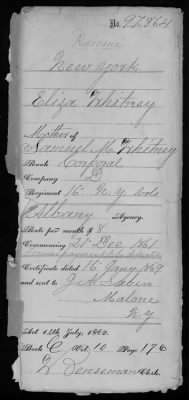 No. 97,864
New York
Eliza Whitney
Mother of
Samuel M. Whitney
Rank Corporal
Company D
Regiment 16" N.Y. Vols
Albany Agency.
Rate per month $ 8
Commencing 21" Dec. 1861
Certificate dated 16 Jany 1869
and sent to J. A. Sabin
Malone
N.Y
Act 14th July, 1862.
Book C Vol. 10 Page 176
Clerk.